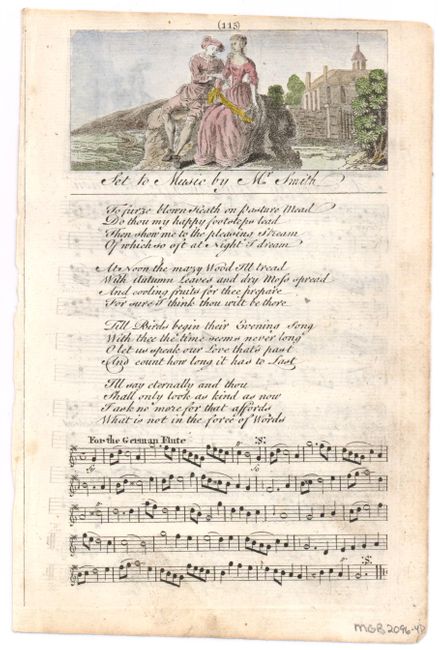 (115)
Set to Music by Mr Smith
To furze blown Heath or Pasture Mead
Do thou my happy footsteps lead
Then show me to the pleasing Stream
Of which so oft at Night I dream
At Noon the mazy Wood I'll tread
With Autumn Leaves and dry Moss spread
And cooling fruits for thee prepare
For sure I think thou wilt be there
Till Birds begin their Evening Song
With thee the time seems never long
O let us speak our Love that's past
And count how long it has to Last
I'll say eternally and thou
Shall only look as kind as now
I ask no more for that affords
What is not in the force of Words
For the German Flute :S:
:S:
MGB 2096-40